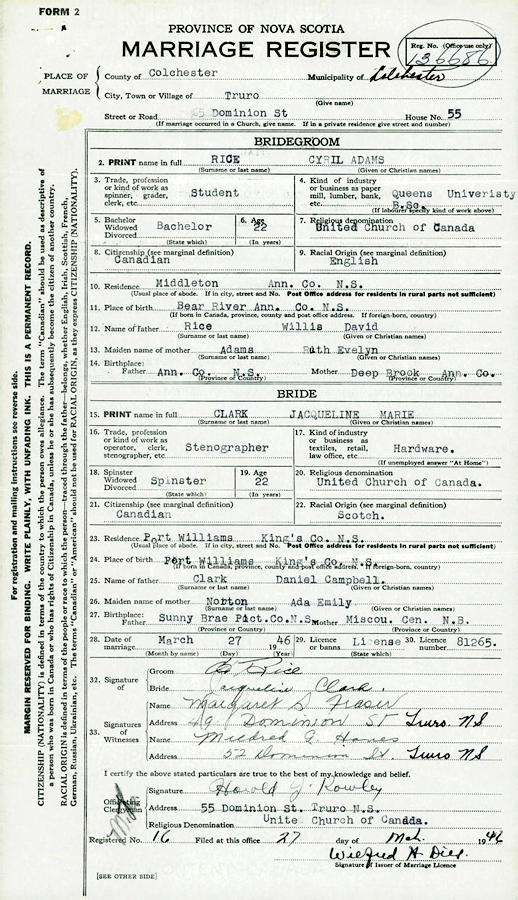 FORM 2
PROVINCE OF NOVA SCOTIA
MARRIAGE REGISTER
Reg. No. (Office use only)
136686
PLACE OF MARRIAGE
County of Colchester Municipality of Colchester
City, Town or Village of Truro
(Give name)
Street or Road 55 Dominion St House No. 55
(If marriage occurred in a Church, give name. If in a private residence give street and number)
BRIDEGROOM
2. PRINT name in full RICE CYRIL ADAMS
(Surname or last name) (Given or Christian names)
3. Trade, profession or kind of work as spinner, grader, clerk, etc. Student
4. Kind of industry or business as paper mill, lumber, bank, etc. Queens Univeristy B.Sc.
(If labourer specify kind of work above)
5. Bachelor Widowed Divorced Bachelor
(State which)
6. Age 22
(In years)
7. Religious denomination
United Church of Canada
8. Citizenship (see marginal definition)
Canadian
9. Racial Origin (see marginal definition)
English
10. Residence Middleton Ann. Co. N.S.
(Usual place of abode. If in city, street and No. Post Office address for residents in rural parts not sufficient)
11. Place of birth Bear River Ann. Co. N.S.
(If born in Canada, province, county and post office address. If foreign-born, country)
12. Name of Father Rice Willis David
(Surname or last name) (Given or Christian names)
13. Maiden name of mother Adams Ruth Evelyn
(Surname or last name) (Given or Christian names)
14. Birthplace:
Father Ann. Co. N.S. Mother Deep Brook Ann. Co.
(Province or Country) (Province or Country)
BRIDE
15. PRINT name in full CLARK JACQUELINE MARIE
(Surname or last name) (Given or Christian names)
16. Trade, profession or kind of work as operator, clerk, stenographer, etc. Stenographer
17. Kind of industry or business as textiles, retail, law office, etc Hardware.
(If unemployed answer "At Home")
18. Spinster Widowed Divorced Spinster
(State which)
19. Age 22
(In years)
20. Religious denomination
United Church of Canada.
21. Citizenship (see marginal definition)
Canadian
22. Racial Origin (see marginal definition)
Scotch.
23. Residence Port Williams King's Co. N.S.
(Usual place of abode. If in city, street and No. Post Office address for residents in rural parts not sufficient)
24. Place of birth Port Williams King's Co. N.S.
(If born in Canada, province, county and post office address. If foreign-born, country)
25. Name of father Clark Daniel Campbell.
(Surname or last name) (Given or Christian names)
26. Maiden name of mother Norton Ada Emily
(Surname or last name) (Given or Christian names)
27. Birthplace:
Father Sunny Brae Pict.Co.N.S. Mother Miscou. Cen. N.B.
(Province or Country) (Province or Country)
28. Date of marriage March 27 1946
(Month by name) (Day) (Year)
29. License or banns License
(State which)
30. License number 81265.
32. Signature of
Groom Rice
Bride Jacqueline Clark.
33. Signatures of Witnesses
Name Margaret S. Fraser
Address 49 Dominion St Truro NS
Name Mildred G.
Address 52 Dominion St. Truro NS
I certify the above stated particulars are true to the best of my knowledge and belief.
Officiating Clergyman
Signature Harold J. Rowley
Address 55 Dominion St. Truro N.S.
Religious Denomination Unite Church of Canada.
Registered No. 16 Filed at this office 27 day of Mch. 1946
Wilfred A.
Signature of Issuer of Marriage Licence
[SEE OTHER SIDE]
For registration and mailing instructions see reverse side.
MARGIN RESERVED FOR BINDING. WRITE PLAINLY, WITH UNFADING INK. THIS IS A PERMANENT RECORD.
CITIZENSHIP (NATIONALITY) is defined in terms of the country to which the person owes allegiance. The term "Canadian" should be used as descriptive of
a person who was born in Canada or who has rights of Citizenship in Canada, unless he or she has subsequently become the citizen of another country.
RACIAL ORIGIN is defined in terms of the people or race to which the person—traced through the father—belongs, whether English, Irish, Scottish, French,
German, Russian, Ukrainian, etc. The terms "Canadian" or "American" should not be used for RACIAL ORIGIN, as they express CITIZENSHIP (NATIONALITY).